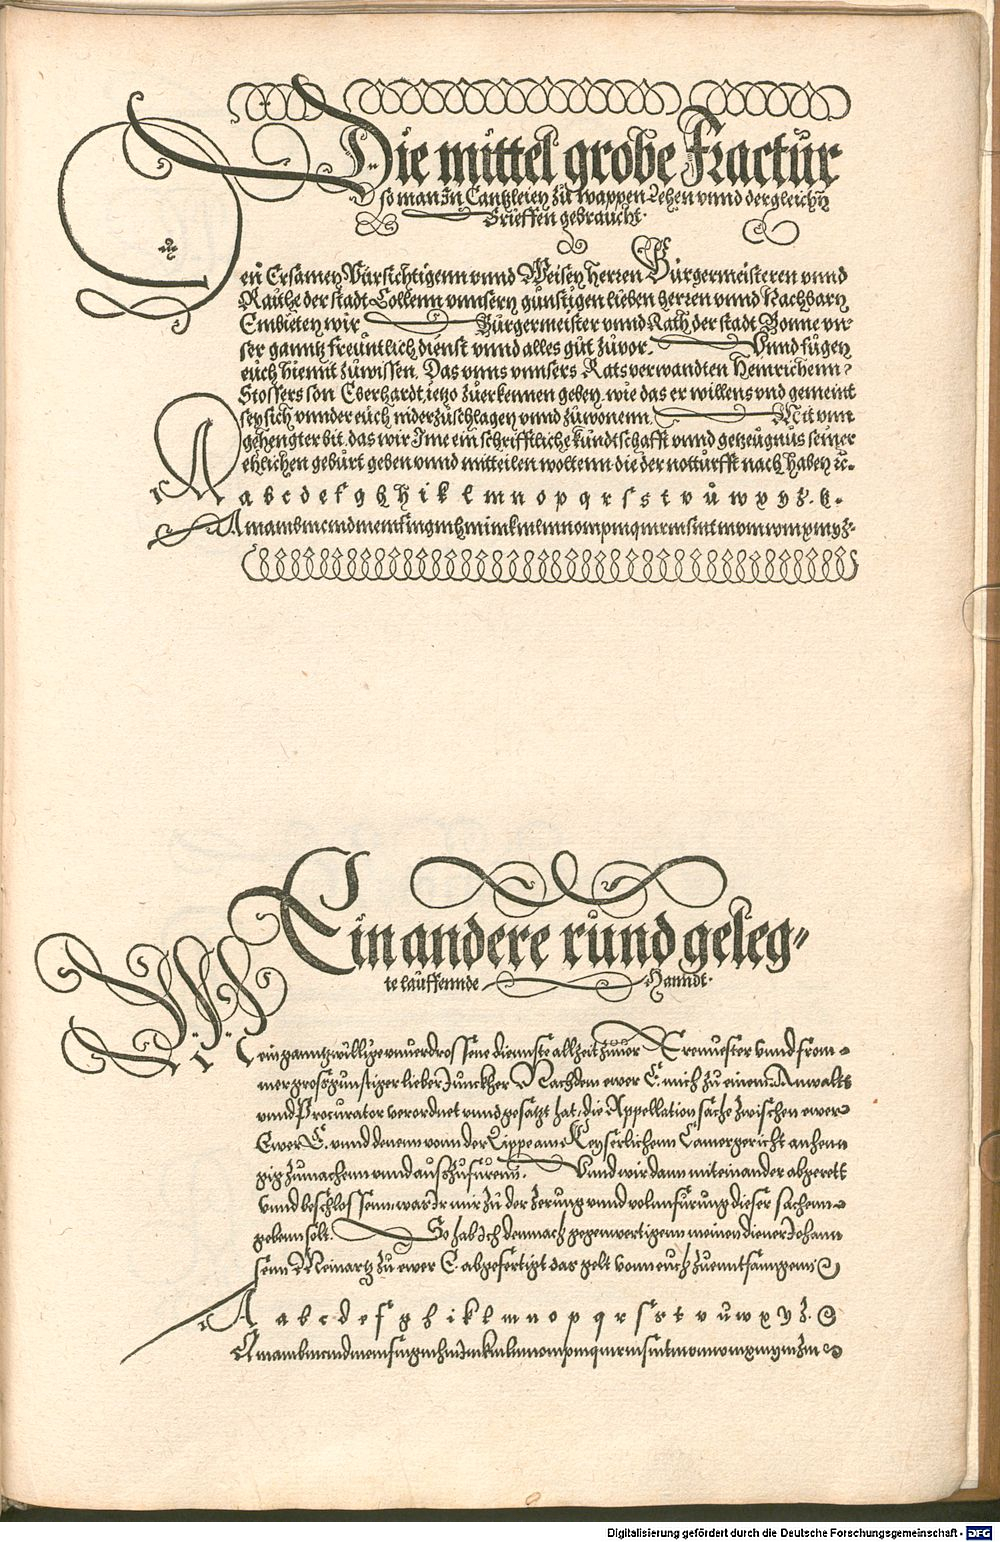 Die mittel grobe Fractůr
so man In Cantzleien zů wappen Lehen vnnd dergleichē
Brieffen gebraucht.
Den Ersamen Vůrsichtigenn vnnd Weisen Herren Bůrgermeisteren vnnd
Rathe der stadt Collenn vnnsern gůnstigen lieben Herren vnnd Nachbarn
Embieten wir Bůrgermeister vnnd Rath der stadt Bonne vn-
ser ganntz freůntlich dienst vnnd alles gůt zůvor. Vnnd fůgen
eůch hiemit zůwissen. Das vnns vnnsers Ratsverwandten Heinrichenn
Stossers son Eberhardt, ietzo zůerkennen geben, wie das er willens vnd gemeint
sey sich vnnder eůch niderzůschlagen vnnd zůwonenn. Mit vnn
gehengter bit, das wir Ime ein schrifftliche kůndtschafft vnnd gezeůgnůs seiner
ehlichen gebůrt geben vnnd mitteilen woltenn die der nottůrfft nach haben ꝛc.
A a b c d e f g h h i k l m n o p q r s s t v ů w x y z.
Amambmcmdmemfmgmhmimkmlmnompmqmrmsmtmvmwmxmyz
Ein andere růnd geleg⸗
te laůffennde Hanndt.
Mein ganntz willige vnuerdrossene diennste allzeit zuuor Ernuester vnnd from
mer grosgunstiger lieber Junckher Nachdem ewer E. mich zu einem Anwalts
vnnd Procurator verordnet vnnd gesatzt hat, die Appellation sache zwischen ewer
Ewer E. vnnd denenn vonn der Lippe am Keyserlichenn Camergericht anhenn
gig zumachenn vnnd auszufurenn. Vnnd wir dann miteinander abgerett
vnnd beschlossenn was Ir mir zů der zerung vnnd volnnfürung dieser sachenn
gebenn solt. So hab Ich dennach gegenwertigenn meinen diener Johann
senn Meinartz zu ewer E. abgefertigt das gelt vonn euch zuenntfanngenn
A a b c d e f g h i k l m n o p q r s s t v ů w x y z.
Amambmcmdmemfmgmhmimkmlmnompmqmrmsmtmvmwmxmymzm
Digitalisierung gefördert durch die Deutsche Forschungsgemeinschaft - DFG